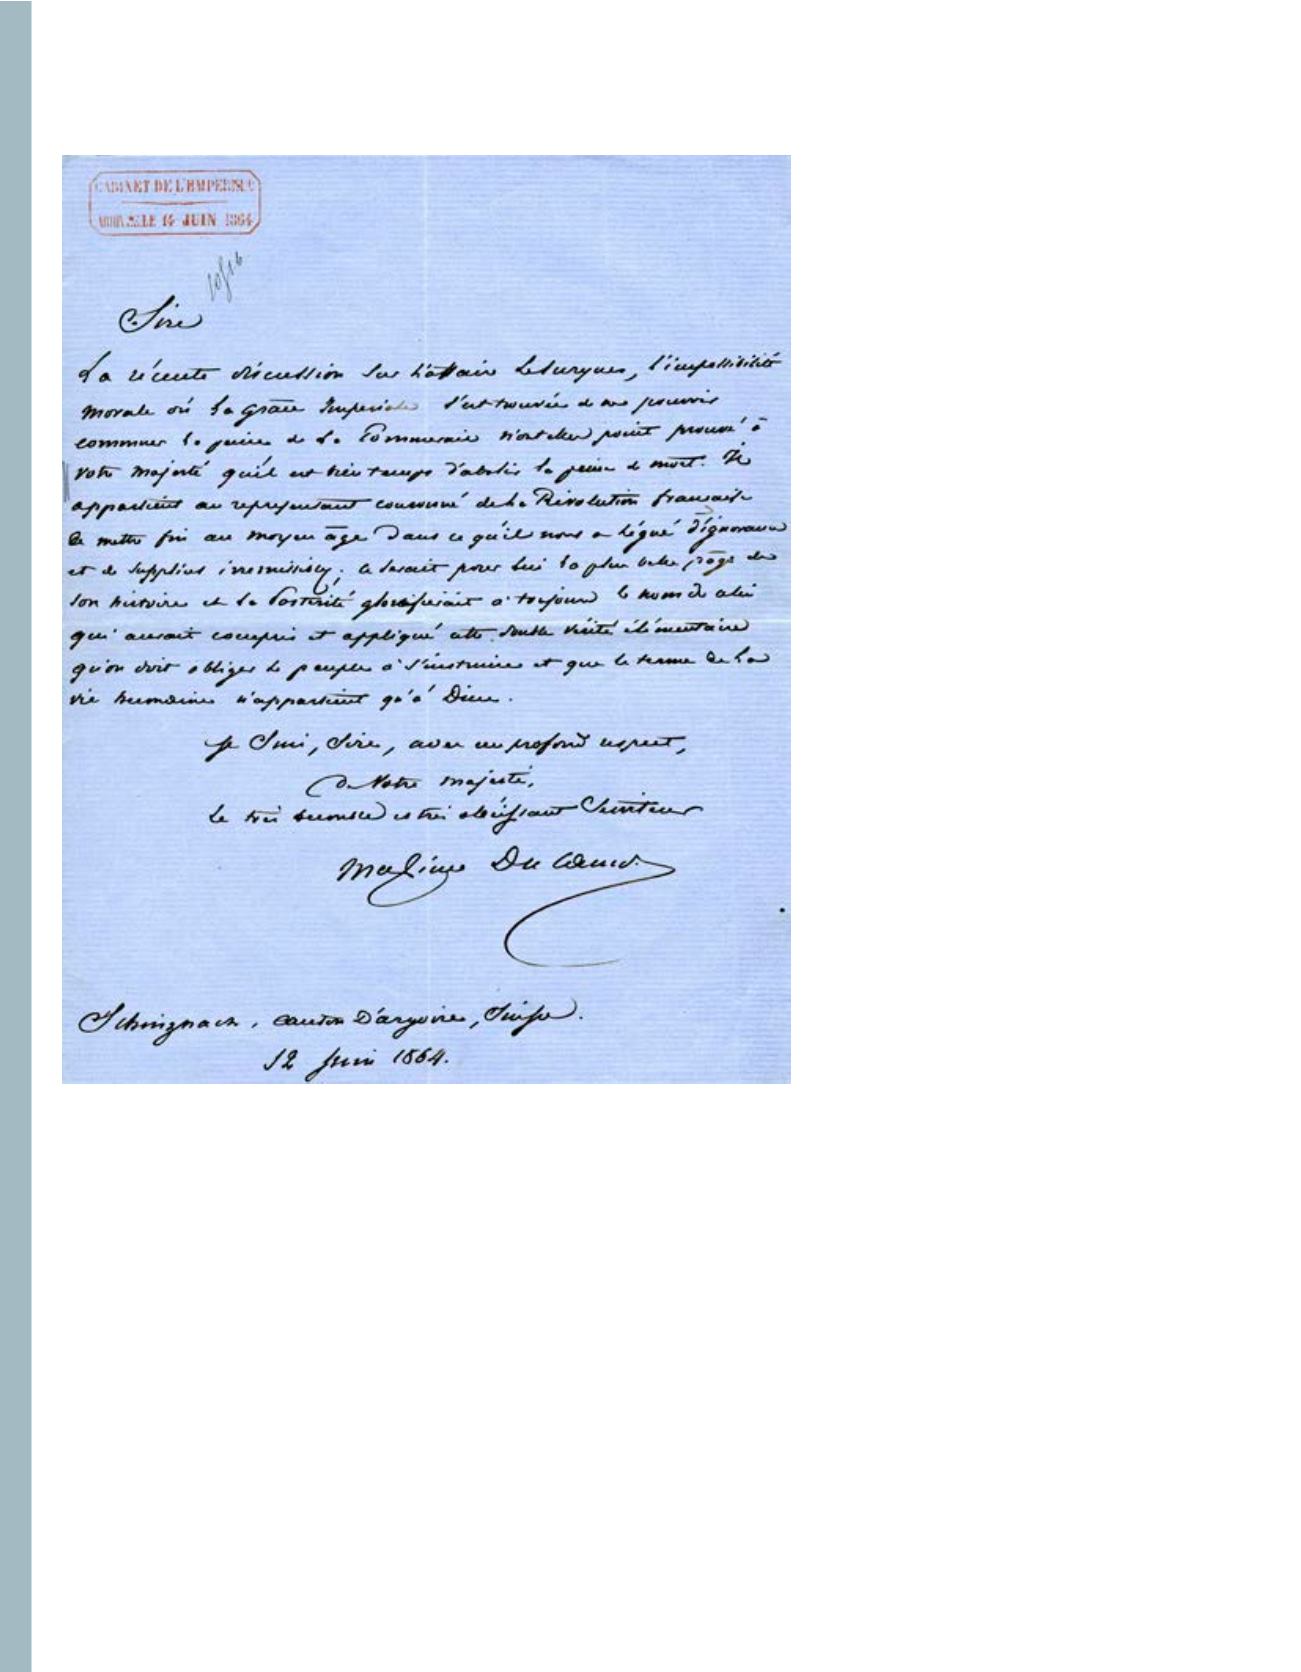 CABINET DE L'EMPEREUR
ARRIVÉE LE 14 JUIN 1864
Sire
La récente discussion sur l'affaire Lesurques, l'impossibilité
morale où la grâce Impériale s'est trouvée de ne pouvoir
commuer la peine de La Pommerais n'ont-elles point prouvé à
votre majesté qu'il est bien temps d'abolir la peine de mort. Il
appartient au représentant couronné de la Révolution française
de mettre fin au moyen âge dans ce qu'il nous a légué d'ignorance
et de supplices irrémissibles; ce serait pour lui la plus belle page de
son histoire et la Postérité glorifierait à toujours le nom de celui
qui aurait compris et appliqué cette double vérité élémentaire
qu'on doit obliger le peuple à s'instruire et que le terme de la
vie humaine n'appartient qu'à Dieu.
Je suis, Sire, avec un profond respect,
de Votre majesté,
le très humble et très obéissant Serviteur
Maxime Du Camp.
Schinznach, canton d'argovie, Suisse.
12 Juin 1864.